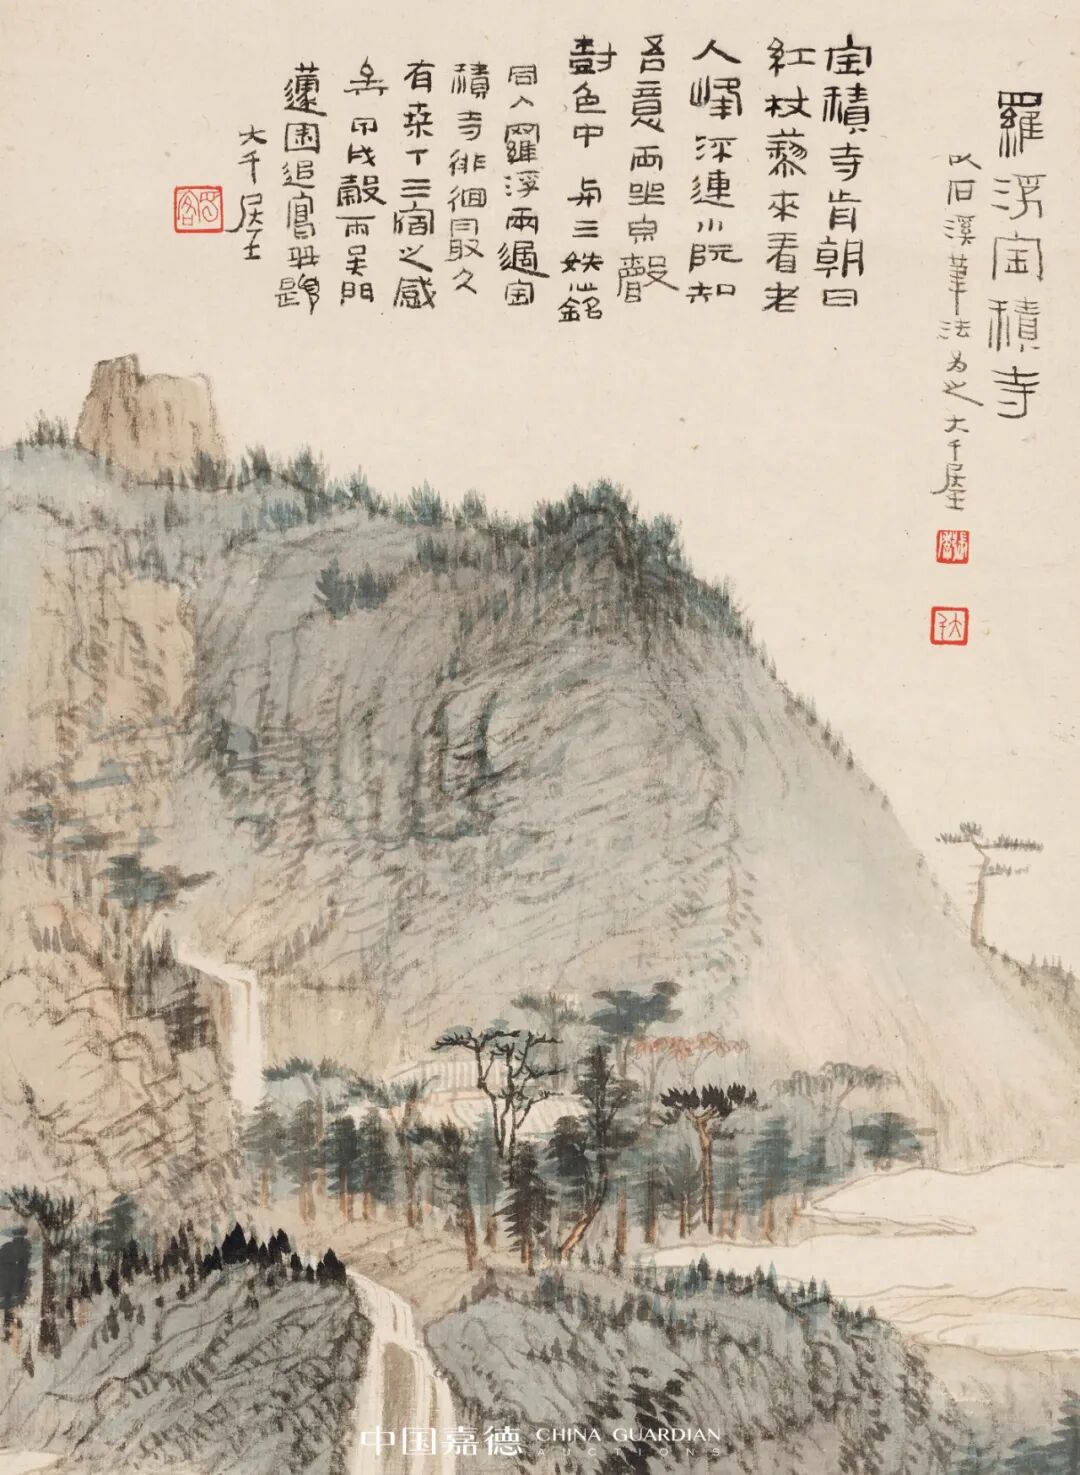 羅浮宝積寺
以石溪筆法为之 大千居士
宝積寺歬朝日
紅杖藜來看老
人峰深連小阮知
吾意兩坐泉聲
樹色中 与三姪心銘
同入羅浮兩過宝
積寺徘徊冣久
有桒下三宿之感
矣 甲戌穀雨吴門
蘧園追寫并題
大千居士
張爰
大千
中国嘉德 CHINA GUARDIAN
AUCTIONS